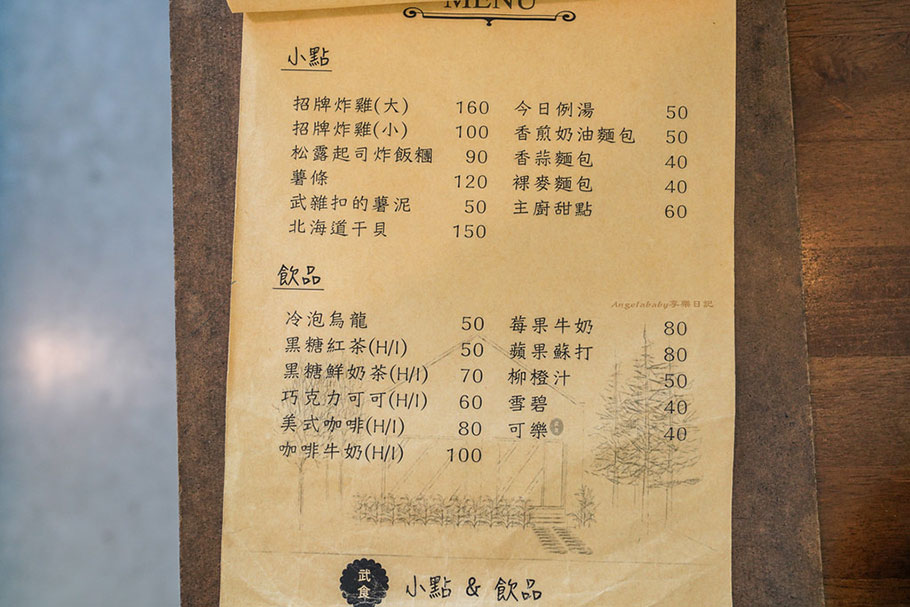 MENU
小點
招牌炸雞(大) 160
招牌炸雞(小) 100
松露起司炸飯糰 90
薯條 120
武雜扣的薯泥 50
北海道干貝 150
今日例湯 50
香煎奶油麵包 50
香蒜麵包 40
裸麥麵包 40
主廚甜點 60
飲品
Angelababy享樂日記
冷泡烏龍 50
黑糖紅茶(H/I) 50
黑糖鮮奶茶(H/I) 70
巧克力可可(H/I) 60
美式咖啡(H/I) 80
咖啡牛奶(H/I) 100
莓果牛奶 80
蘋果蘇打 80
柳橙汁 50
雪碧 40
可樂 40
武食
小點 & 飲品